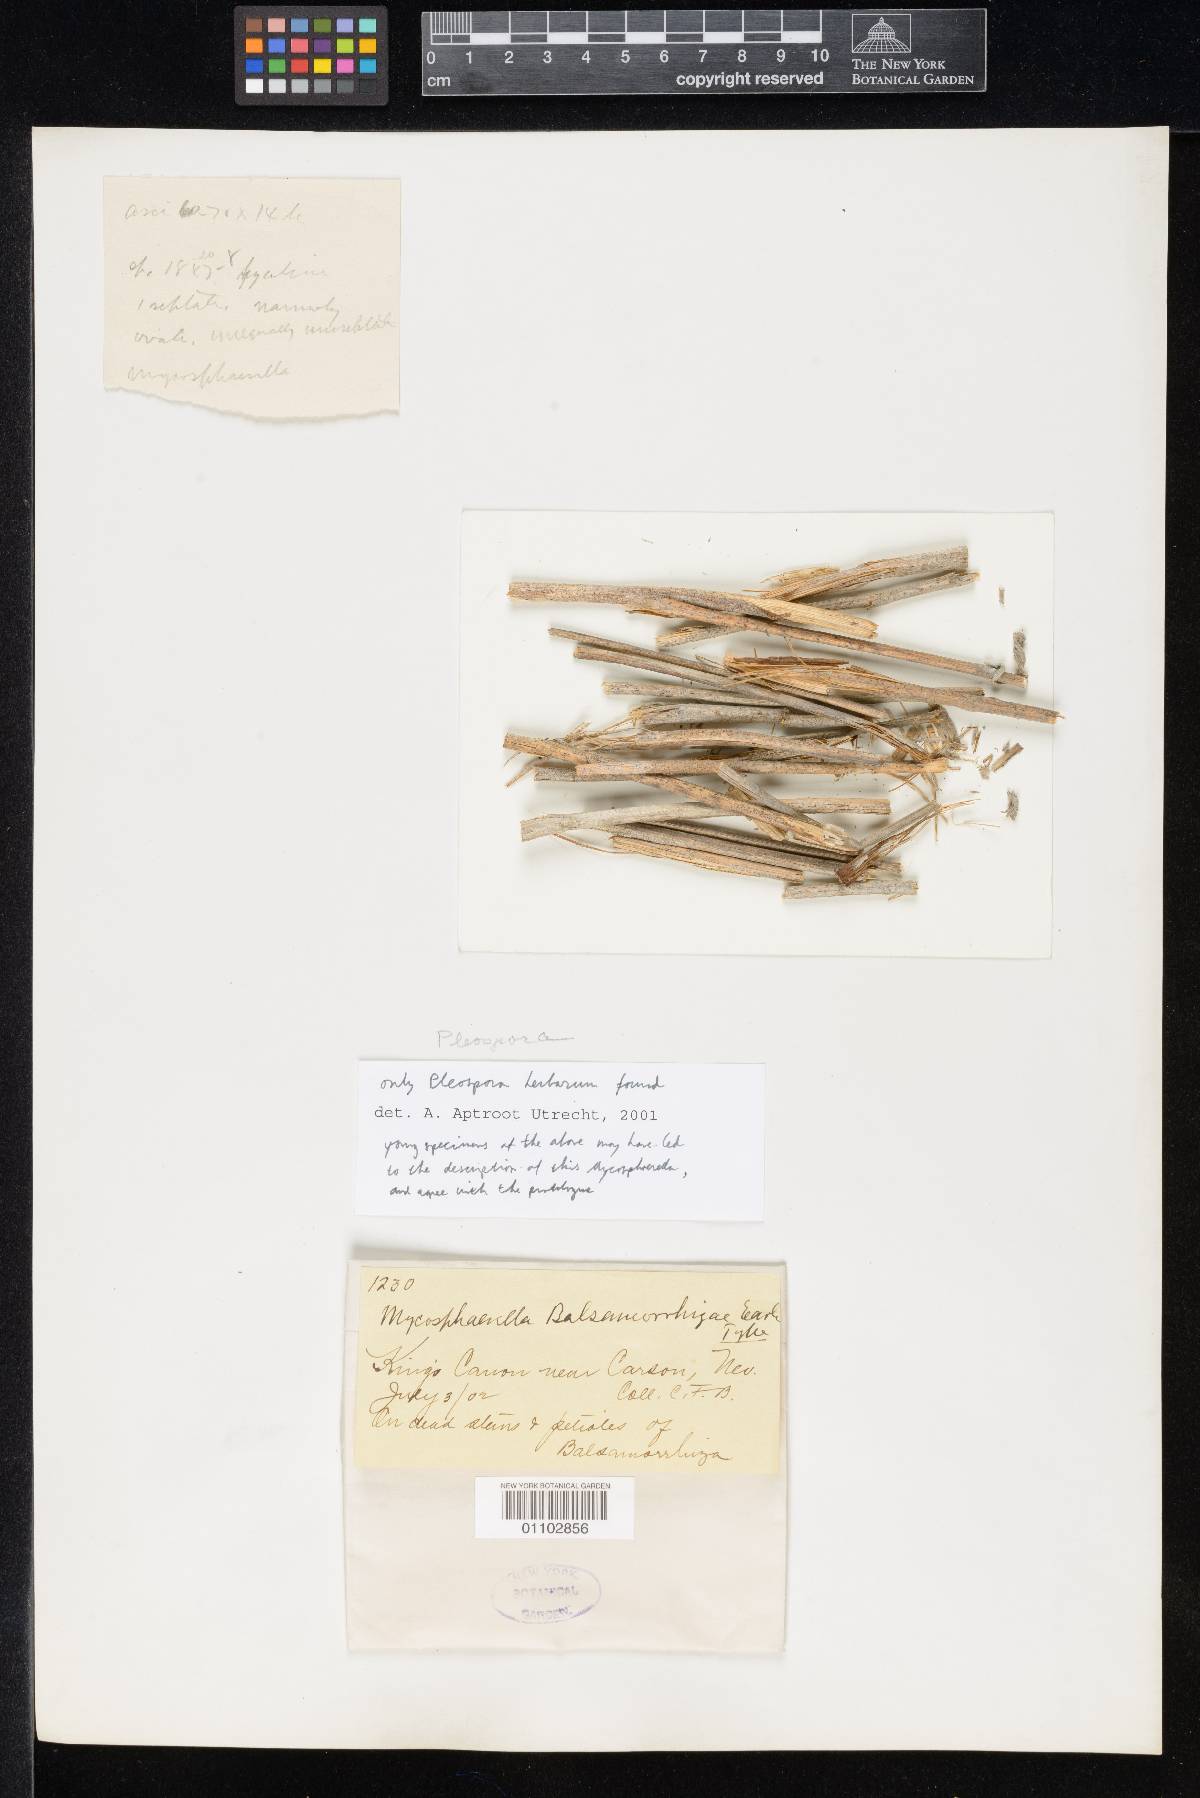 0 1 2 3 4 5 6 7 8 9 10
cm
copyright reserved
THE NEW YORK
BOTANICAL GARDEN
asci 60-70 x 14
hyaline
1 septate. narrowly
ovate, unequally uniseptate
Mycosphaerella
Pleospora
only Pleospora herbarum found
det. A. Aptroot Utrecht, 2001
young specimens of the above may have led
to the description of this Mycosphaerella,
and agree with the protologue
1230
Mycosphaerella Balsamorrhizae Earle
Type
King's Canon near Carson, Nev.
July 3/02 Coll. C. F. B.
On dead stems & petioles of
Balsamorrhiza
NEW YORK BOTANICAL GARDEN
01102856
NEW YORK
BOTANICAL
GARDEN.